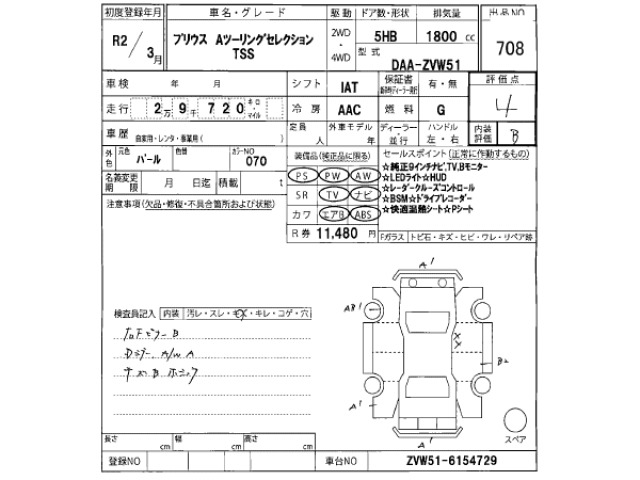 初度登録年月 車名・グレード 駆動 ドア数・形状 排気量 出品NO
R2/3月 プリウス Aツーリングセレクション TSS 2WD・4WD 5HB 1800cc 708
型式 DAA-ZVW51
車検 年 月 シフト IAT 保証書 有・無 評価点
走行 2万9千720キロ・マイル 冷房 AAC 燃料 G 4
車歴 自家用・レンタ・事業用( ) 定員 人 外車モデル 年 ディーラー・並行 ハンドル 左・右 内装評価 B
外色 元色 パール 色替 カラーNO 070
装備品(純正品に限る) セールスポイント(正常に作動するもの)
名義変更期限 月 日迄 積載 t
PS PW AW
SR TV ナビ
カワ エアB ABS
R券 11,480円
☆純正9インチナビ,TV,Bモニター
☆LEDライト☆HUD
☆レーダークルーズコントロール
☆BSM☆ドライブレコーダー
☆快適温熱シート☆Pシート
注意事項(欠品・修復・不具合箇所および状態)
Fガラス トビ石・キズ・ヒビ・ワレ・リペア跡
検査員記入 内装 汚レ・スレ・キズ・キレ・コゲ・穴
A1
AB1
A1
B2
A1
A1
スペア
長さ cm 幅 cm 高さ cm
登録NO 車台NO ZVW51-6154729